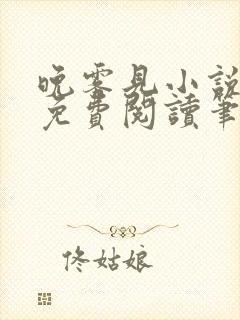 晚零見小說
免費閱讀筆
佟姑娘